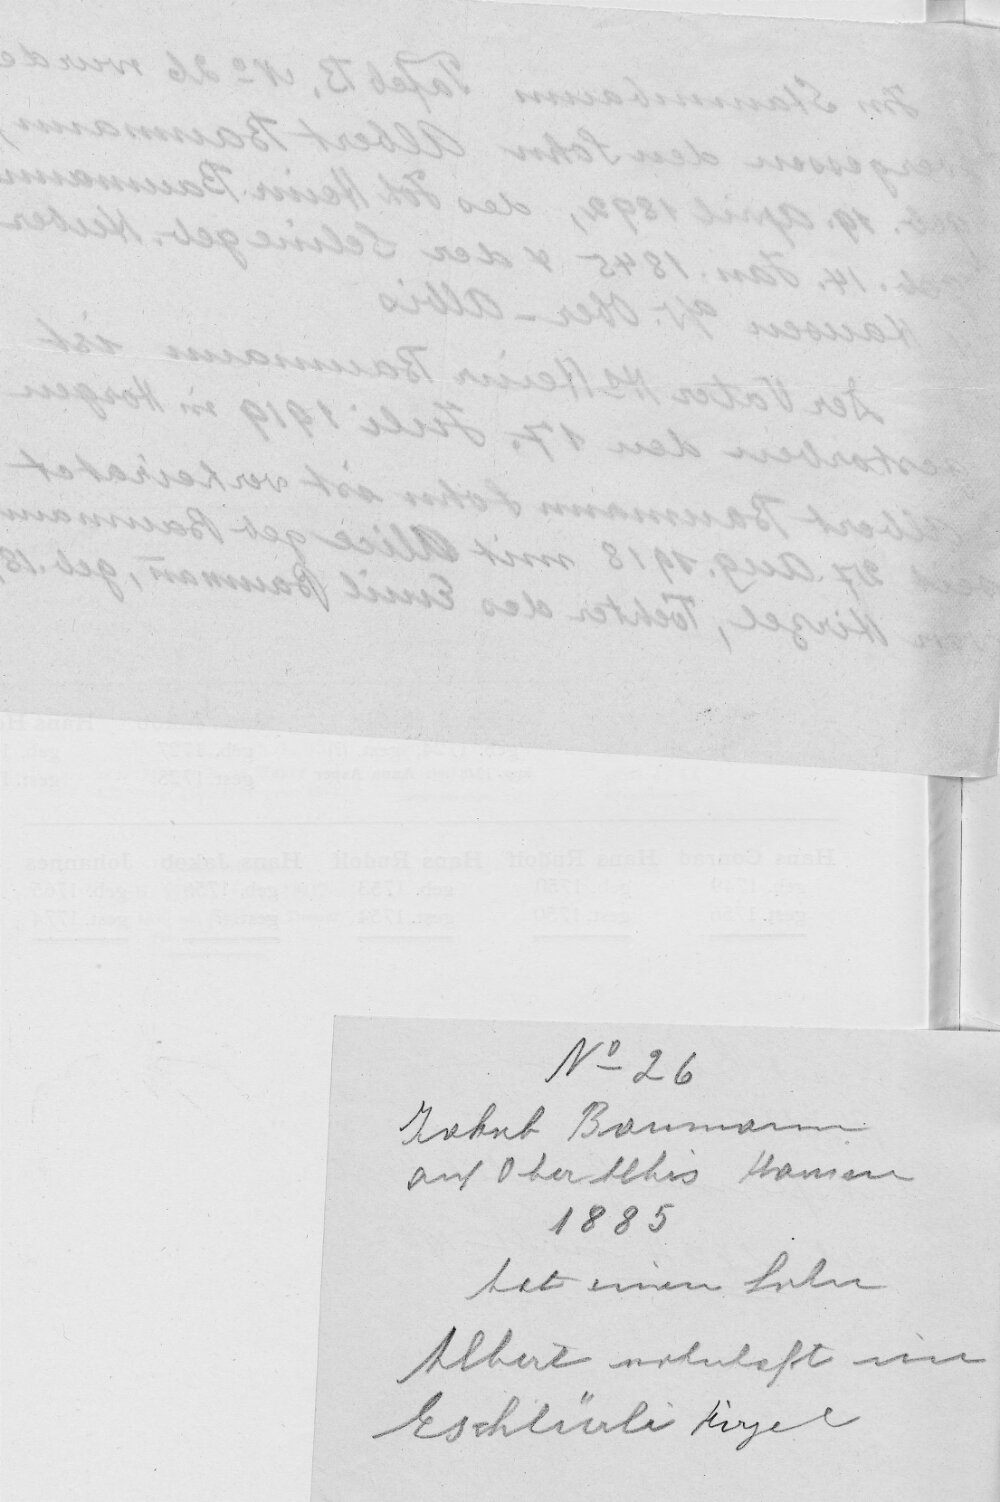 Im Stammbaum Tafel B, No 26 wurde
vergessen den Sohn Albert Baumann,
geb. 19. April 1892, des Joh. Heinr. Baumann
geb. 14. Jan. 1845 & der Seline geb. Huber
Hausen a/A. Ober-Albis
Der Vater Hs Heinr Baumann ist
gestorben den 17. Juli 1919 in Horgen
Albert Baumann Sohn ist verheiratet
seit 27. Aug. 1918 mit Alice geb Baumann
von Hirzel, Tochter des Emil Baumann, geb. 18
geb. 1737
gest. 1738
Hans Conrad Hans Rudolf Hans Rudolf Hans Jakob Johannes
geb. 1749 geb. 1750 geb. 1753 geb. 1756 geb. 1765
gest. 1756 gest. 1750 gest. 1774
No 26
Jakob Baumann
auf Ober Albis Hausen
1885
hat einen Sohn
Albert wohnhaft im
Eschtürli Hirzel